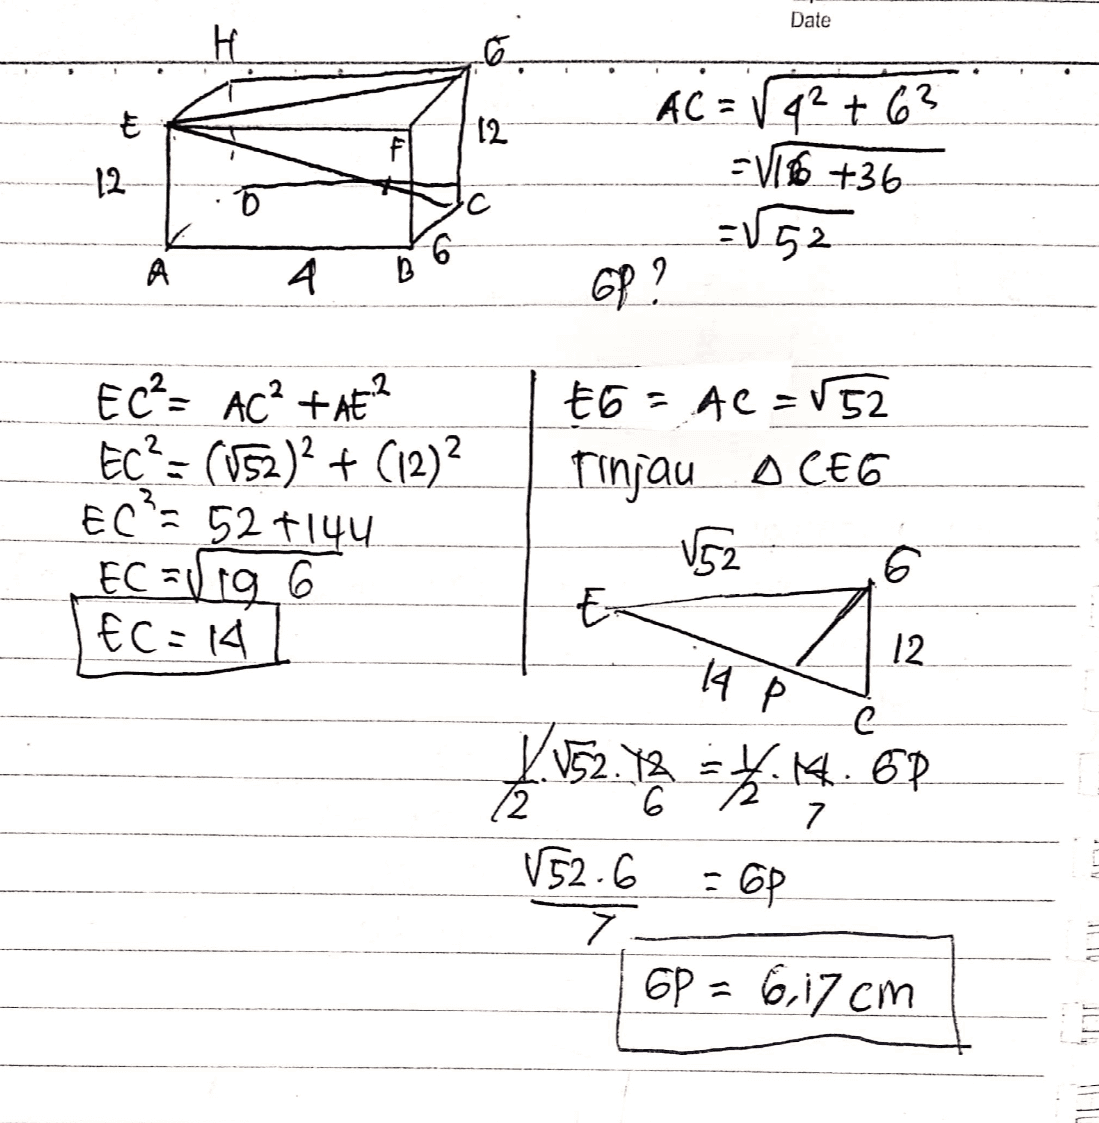 Date
H G
E F 12
12 D C
A 4 B 6
AC = √4² + 6²
= √16 + 36
= √52
GP ?
EC² = AC² + AE²
EC² = (√52)² + (12)²
EC² = 52 + 144
EC = √196
EC = 14
EG = AC = √52
Tinjau △ CEG
√52 G
E 12
14 P
C
1/2 . √52 . 12 = 1/2 . 14 . GP
6 7
√52 . 6 / 7 = GP
GP = 6,17 cm